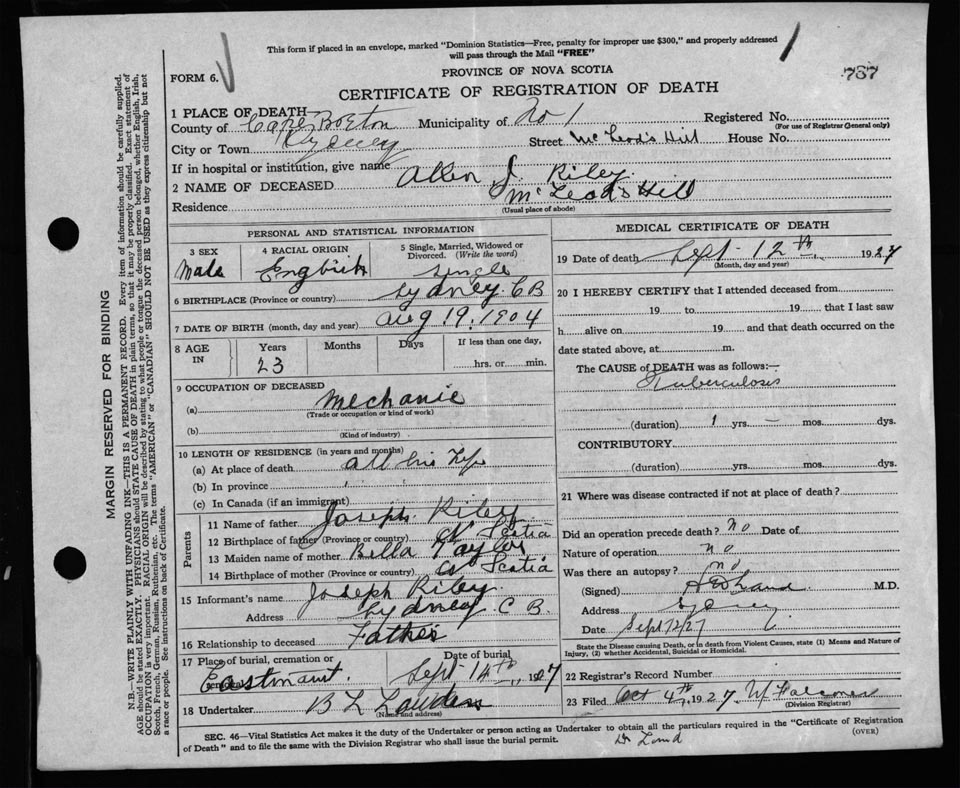 This form if placed in an envelope, marked "Dominion Statistics—Free, penalty for improper use $300," and properly addressed
will pass through the Mail "FREE"
FORM 6.
787
PROVINCE OF NOVA SCOTIA
CERTIFICATE OF REGISTRATION OF DEATH
1 PLACE OF DEATH
County of Cape Breton Municipality of No 1 Registered No.
(For use of Registrar General only)
City or Town Sydney Street McLeod's Hill House No.
If in hospital or institution, give name
2 NAME OF DECEASED Allen J. Riley
Residence McLeods Hill
(Usual place of abode)
PERSONAL AND STATISTICAL INFORMATION
3 SEX 4 RACIAL ORIGIN 5 Single, Married, Widowed or Divorced. (Write the word)
Male English single
6 BIRTHPLACE (Province or country) Sydney. C B
7 DATE OF BIRTH (month, day and year) Aug 19. 1904
8 AGE IN Years Months Days If less than one day,
23 hrs. or min.
9 OCCUPATION OF DECEASED
(a) Mechanic
(Trade or occupation or kind of work)
(b)
(Kind of industry)
10 LENGTH OF RESIDENCE (in years and months)
(a) At place of death all his life
(b) In province
(c) In Canada (if an immigrant)
Parents
11 Name of father Joseph Riley
12 Birthplace of father (Province or country) N Scotia
13 Maiden name of mother Bella Taylor
14 Birthplace of mother (Province or country) N Scotia
15 Informant's name Joseph Riley
Address Sydney C B.
16 Relationship to deceased Father
17 Place of burial, cremation or Date of burial
Eastmount. Sept 14th, 1927
18 Undertaker B L
(Name and address)
MEDICAL CERTIFICATE OF DEATH
19 Date of death Sept 12th 1927
(Month, day and year)
20 I HEREBY CERTIFY that I attended deceased from
19 to 19 that I last saw
h alive on 19 and that death occurred on the
date stated above, at m.
The CAUSE of DEATH was as follows:—
Tuberculosis
(duration) 1 yrs. – mos. dys.
CONTRIBUTORY
(duration) yrs. mos. dys.
21 Where was disease contracted if not at place of death?
Did an operation precede death? no Date of
Nature of operation no
Was there an autopsy? no
(Signed) M.D.
Address Sydney
Date Sept 12/27
State the Disease causing Death, or in death from Violent Causes, state (1) Means and Nature of
Injury, (2) whether Accidental, Suicidal or Homicidal.
22 Registrar's Record Number
23 Filed Oct 4th, 1927. W Falconer
(Division Registrar)
SEC. 46—Vital Statistics Act makes it the duty of the Undertaker or person acting as Undertaker to obtain all the particulars required in the "Certificate of Registration
of Death" and to file the same with the Division Registrar who shall issue the burial permit.
(OVER)
MARGIN RESERVED FOR BINDING
N.B.—WRITE PLAINLY WITH UNFADING INK—THIS IS A PERMANENT RECORD. Every item of information should be carefully supplied.
AGE should be stated EXACTLY. PHYSICIANS should STATE CAUSE OF DEATH in plain terms, so that it may be properly classified. Exact statement of
OCCUPATION is very important. RACIAL ORIGIN will be described by stating to what people or tongue the deceased person belonged, whether English, Irish,
Scotch, French, German, Russian, Ruthenian, etc. The terms "AMERICAN" or "CANADIAN" SHOULD NOT BE USED as they express citizenship but not
a race or people. See instructions on back of Certificate.